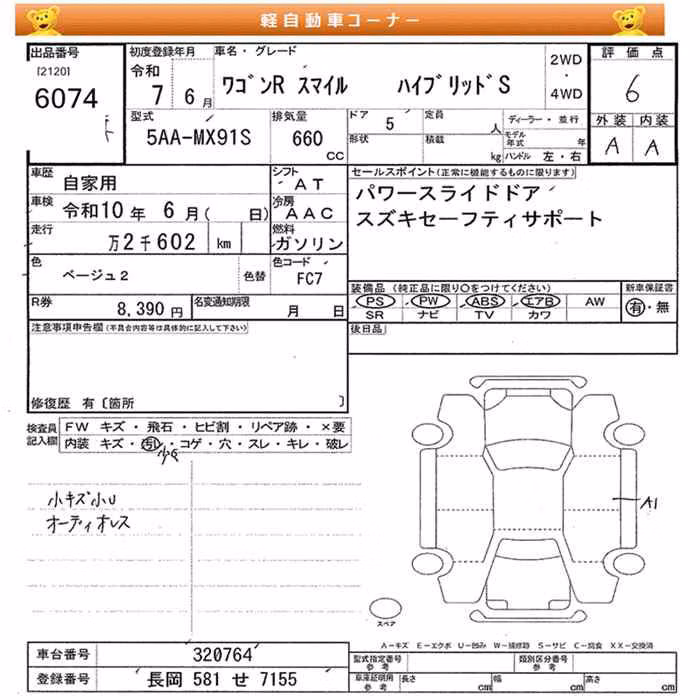 軽自動車コーナー
出品番号
[2120]
6074
初度登録年月
令和
7 6月
車名・グレード
ワゴンR スマイル ハイブリッドS
2WD
・
4WD
評価点
6
外装 内装
A A
型式
5AA-MX91S
排気量
660
CC
ドア 5
形状
定員 人
積載 kg
ディーラー・並行
モデル年式 年
ハンドル 左・右
車歴
自家用
シフト
AT
車検
令和10年 6月( 日)
冷房
AAC
走行
万2千602 km
燃料
ガソリン
色
ベージュ2
色替
色コード
FC7
セールスポイント(正常に機能するものに限ります)
パワースライドドア
スズキセーフティサポート
装備品(純正品に限り○をつけてください)
PS PW ABS エアB AW
SR ナビ TV カワ
新車保証書
有・無
R券
8,390円
名変通知期限
月 日
後日品
注意事項申告欄(不具合内容等は具体的に記入して下さい)
修復歴 有〔箇所 〕
検査員
記入欄
FW キズ・飛石・ヒビ割・リペア跡・×要
内装 キズ・汚レ・コゲ・穴・スレ・キレ・破レ
小キズ小U
オーディオレス
A1
スペア
A−キズ E−エクボ U−凹み W−補修跡 S−サビ C−腐食 XX−交換済
車台番号
320764
登録番号
長岡 581 せ 7155
型式指定番号
参考
類別区分番号
参考
車庫証明用
参考
長さ cm
幅 cm
高さ cm